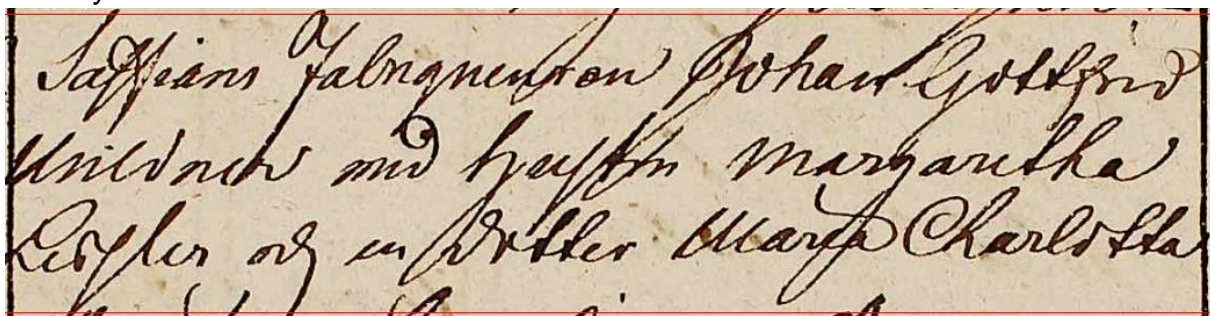 Saffians Fabriqueuren Johan Gottfrid
Mildner med hustru Margaretha
och en dotter Maria Charlotta